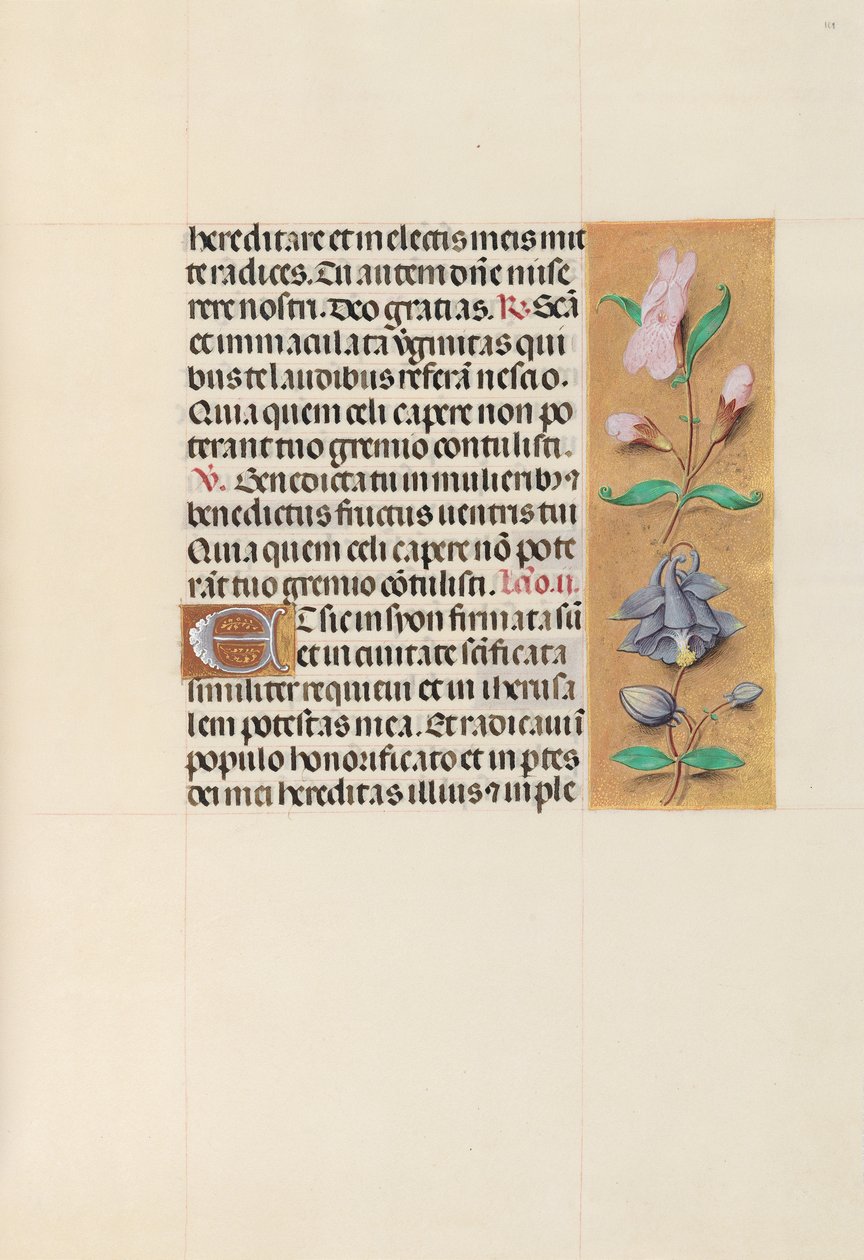 101
hereditare et in electis meis mit
te radices. Tu autem dn̄e mise
rere nostri. Deo gratias. R. Scā
et immaculata v̄ginitas qui
bus te laudibus referā nescio.
Quia quem celi capere non po
terant tuo gremio contulisti.
V. Benedicta tu in mulieribꝫ ⁊
benedictus fructus uentris tui
Quia quem celi capere nō pote
rāt tuo gremio cōtulisti. Lc̄o. ii.
Et sic in syon firmata sū
et in ciuitate sc̄ificata
similiter requieui et in iherusa
lem potestas mea. Et radicaui ī
populo honorificato et in ꝑtes
dei mei hereditas illius ⁊ in ple